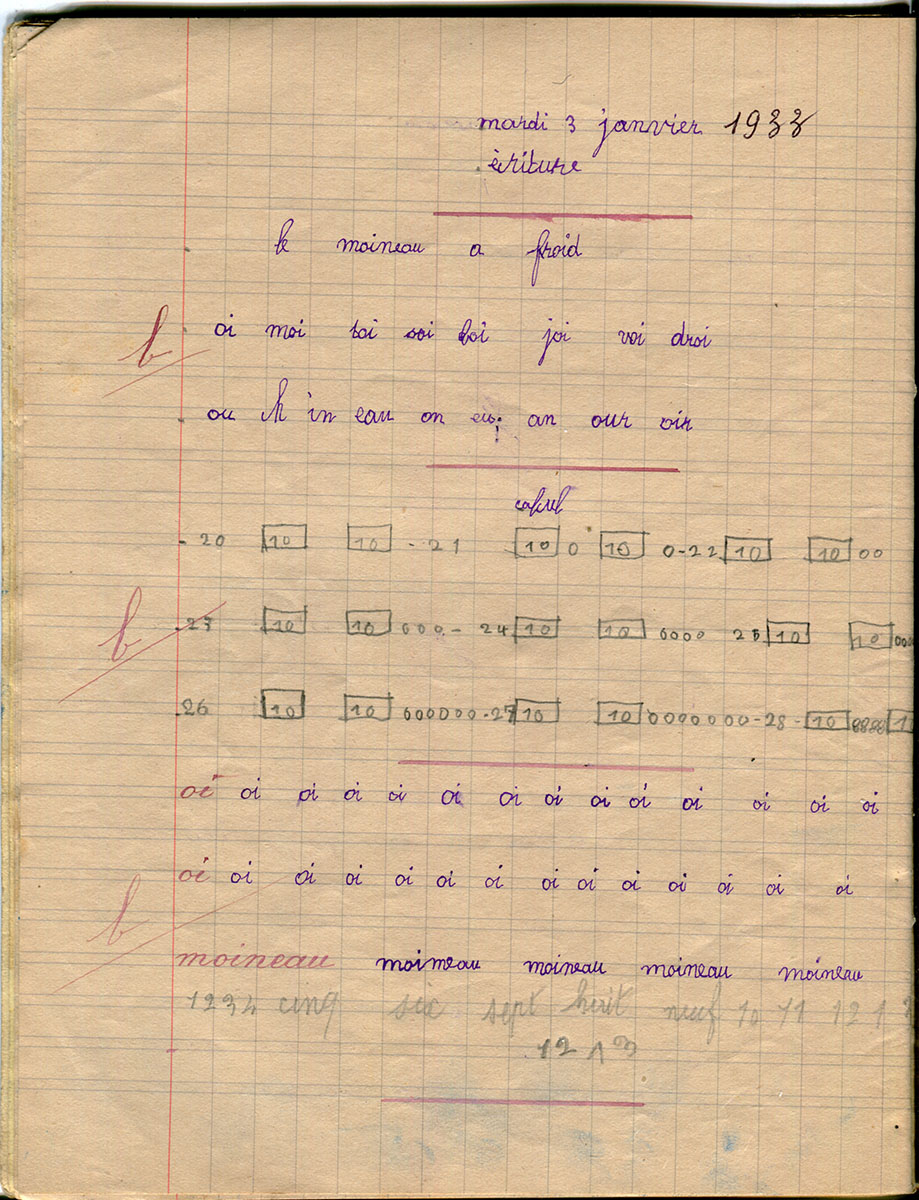 mardi 3 janvier 1933
écriture
le moineau a froid
b oi moi toi soi loi joi voi droi
ou ch in eau on eu an our oir
calcul
20 10 10 - 21 10 0 10 0-22 10 10 00
b 23 10 10 000 - 24 10 10 0000 25 10 10 000
26 10 10 000000-27 10 10 0000000-28-10 8888 1
oi oi oi oi oi oi oi oi oi oi oi oi oi oi
b oi oi oi oi oi oi oi oi oi oi oi oi oi oi
moineau moineau moineau moineau moineau
1234 cinq six sept huit neuf 10 11 12 1
12 13